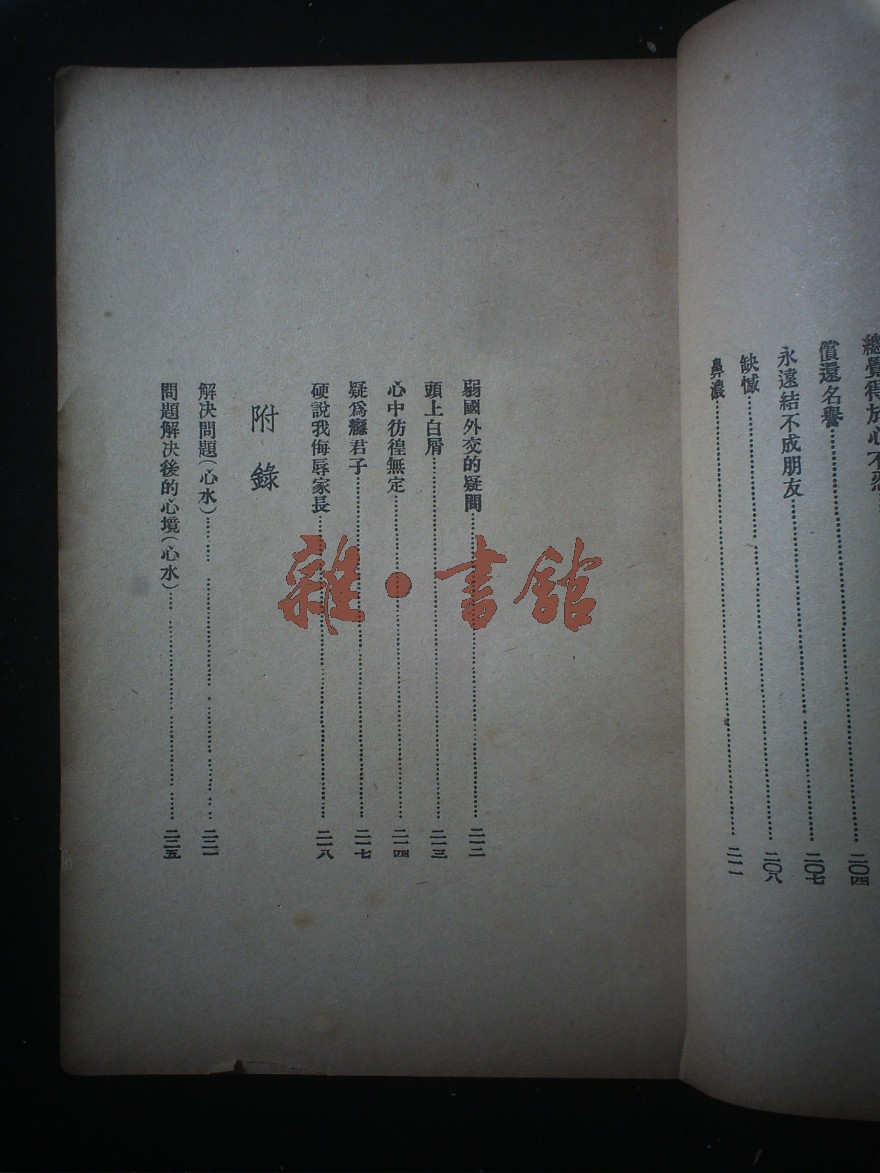 總覺得放心不
二〇四
償還名譽
二〇七
永遠結不成朋友
二〇八
缺憾
鼻濃
二一一
弱國外交的疑問
二一二
頭上白屑
二一三
心中彷徨無定
二一四
疑爲癮君子
二一七
硬說我侮辱家長
二一八
附錄
解决問題(心水)
問題解决後的心境(心水)
二三五
雜·書館